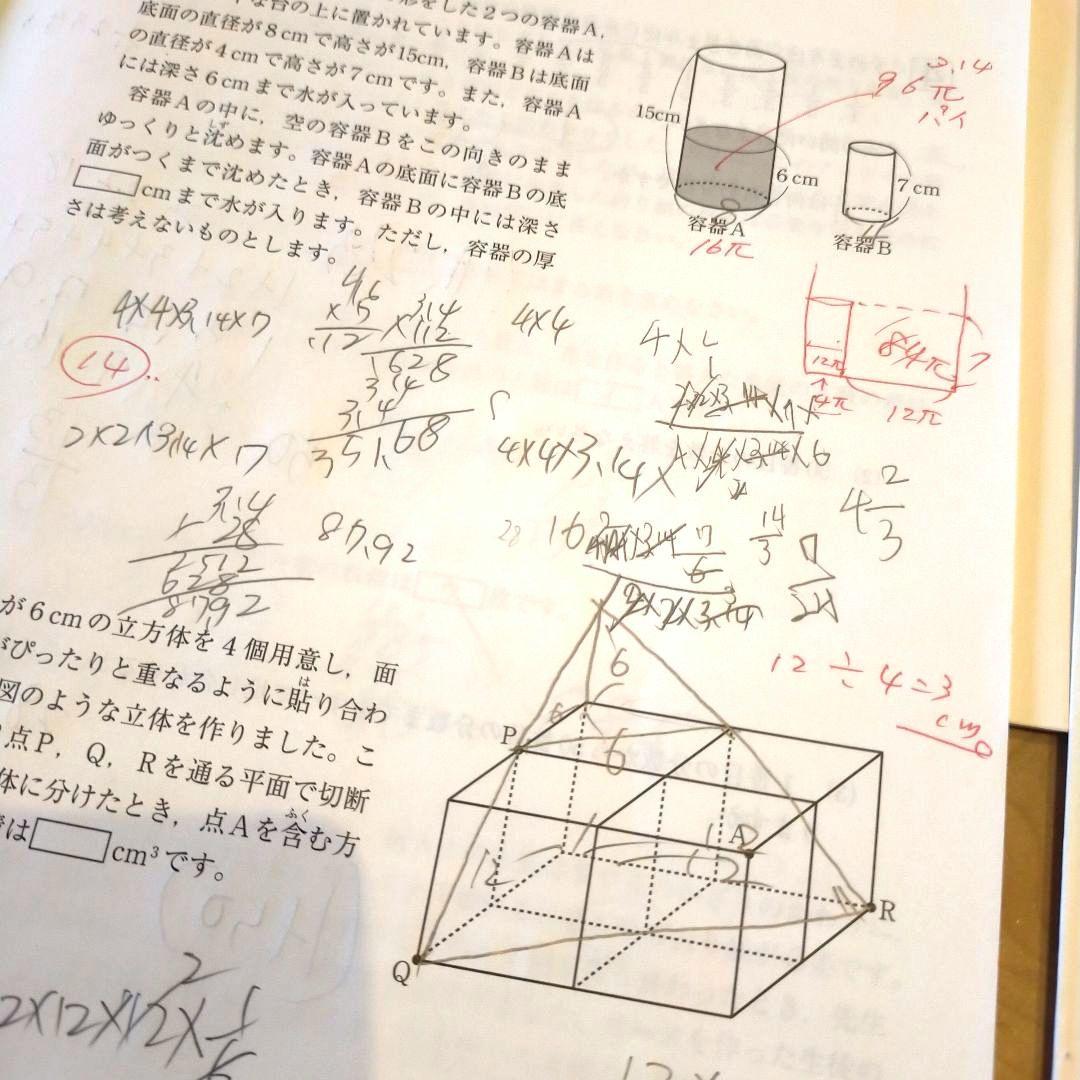 形をした2つの容器A,
な台の上に置かれています。容器Aは
底面の直径が8cmで高さが15cm, 容器Bは底面
の直径が4cmで高さが7cmです。また, 容器A
には深さ6cmまで水が入っています。
容器Aの中に, 空の容器Bをこの向きのまま
ゆっくりと沈めます。容器Aの底面に容器Bの底
しず
面がつくまで沈めたとき, 容器Bの中には深さ
cmまで水が入ります。ただし, 容器の厚
さは考えないものとします。
15cm
6cm
容器A
16π
7cm
容器B
96π
3.14
パイ
12π
4π
84π
7
12π
4×4×3.14×7
14
2×2×3.14×7
3.14
×112
1628
314
314
351.68
4×4
4×4×3.14×
3.14
28
2512
628
87.92
87.92
28
16
14
3
4 2/3
12÷4=3
cm
が6cmの立方体を4個用意し, 面
がぴったりと重なるように貼り合わ
は
図のような立体を作りました。こ
点P, Q, Rを通る平面で切断
体に分けたとき, 点Aを含む方
ふく
は cm³です。
P
6
6
A
12
12
R
Q
2×12×12×
2